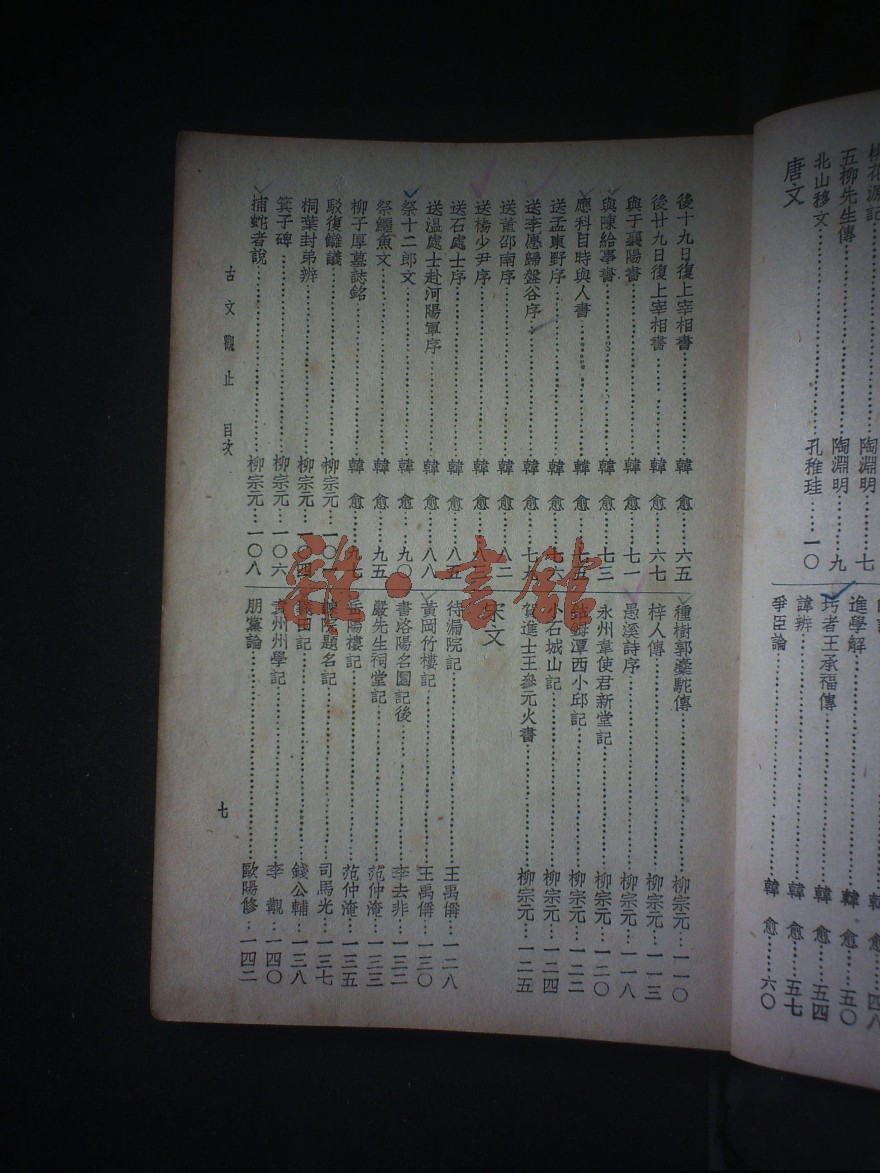 桃花源記……陶淵明…七
五柳先生傳……陶淵明…九
北山移文……孔稚珪…一〇
唐文
韓 愈……四八
進學解……韓 愈……五〇
圬者王承福傳……韓 愈……五四
諱辨……韓 愈……五七
爭臣論……韓 愈……六〇
後十九日復上宰相書……韓 愈……六五
後廿九日復上宰相書……韓 愈……六七
與于襄陽書……韓 愈……七一
與陳給事書……韓 愈……七三
應科目時與人書……韓 愈……七五
送孟東野序……韓 愈……
送李愿歸盤谷序……韓 愈……七九
送董邵南序……韓 愈……八二
送楊少尹序……韓 愈……八三
送石處士序……韓 愈……八五
送溫處士赴河陽軍序……韓 愈……八八
祭十二郎文……韓 愈……九〇
祭鱷魚文……韓 愈……九五
柳子厚墓誌銘……韓 愈……九七
駁復讎議……柳宗元…一〇一
桐葉封弟辨……柳宗元…一〇四
箕子碑……柳宗元…一〇六
捕蛇者說……柳宗元…一〇八
種樹郭橐駝傳……柳宗元…一一〇
梓人傳……柳宗元…一一三
愚溪詩序……柳宗元…一一八
永州韋使君新堂記……柳宗元…一二〇
鈷鉧潭西小邱記……柳宗元…一二二
小石城山記……柳宗元…一二四
賀進士王參元火書……柳宗元…一二五
宋文
待漏院記……王禹偁…一二八
黃岡竹樓記……王禹偁…一三〇
書洛陽名園記後……李去非…一三二
嚴先生祠堂記……范仲淹…一三三
岳陽樓記……范仲淹…一三五
諫院題名記……司馬光…一三七
義田記……錢公輔…一三八
袁州州學記……李 覯…一四〇
朋黨論……歐陽修…一四二
古文觀止 目次
七
雜·書館